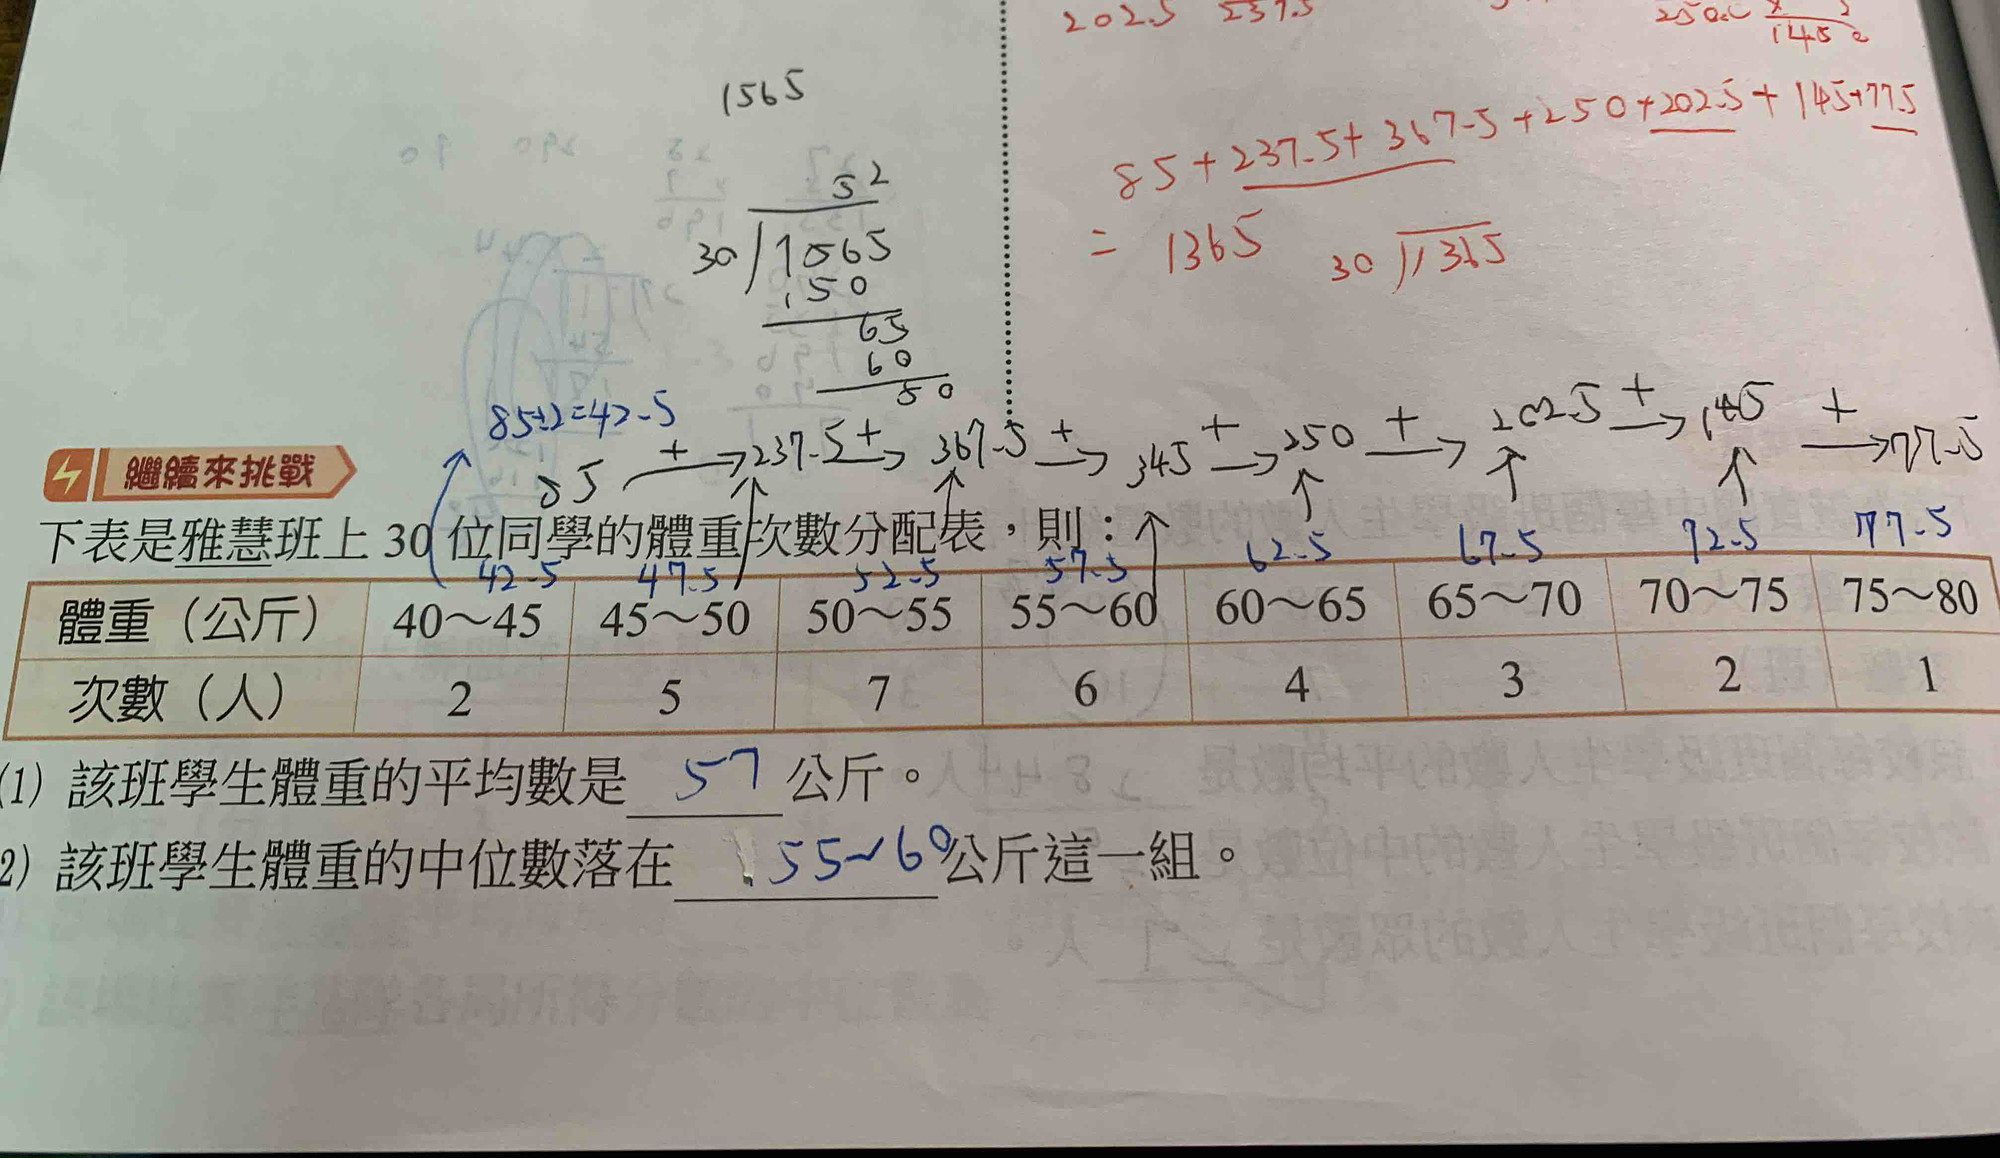 202.5 237.5
1450
1565
85+237.5+367.5+250+202.5+145+77.5
= 1365
30 1365
52
30 1565
150
65
60
50
85÷2=42.5
85 + → 237.5 + → 367.5 + → 345 + → 250 + → 202.5 + → 145 + → 77.5
繼續來挑戰
下表是雅慧班上 30 位同學的體重次數分配表，則：
42.5 47.5 52.5 57.5 62.5 67.5 72.5 77.5
體重（公斤） 40～45 45～50 50～55 55～60 60～65 65～70 70～75 75～80
次數（人） 2 5 7 6 4 3 2 1
(1) 該班學生體重的平均數是 57 公斤。
2) 該班學生體重的中位數落在 55~60 公斤這一組。